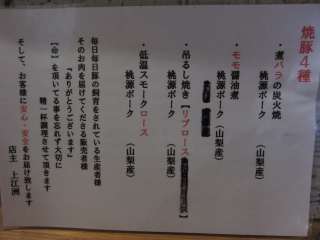 焼豚4種
・煮バラの炭火焼
桃源ポーク　(山梨産)
・モモ醤油煮
桃源ポーク(山梨産)
・吊るし焼き【リブロース
桃源ポーク
・低温スモークロース
桃源ポーク　(山梨産)
毎日毎日豚の飼育をされている生産者様
そのお肉を届けてくださる販売者様
『ありがとうございます』
【命】を頂いてる事を忘れず大切に
精一杯調理させて頂きます
そして、お客様に安心・安全をお届け致します
店主　上江洲